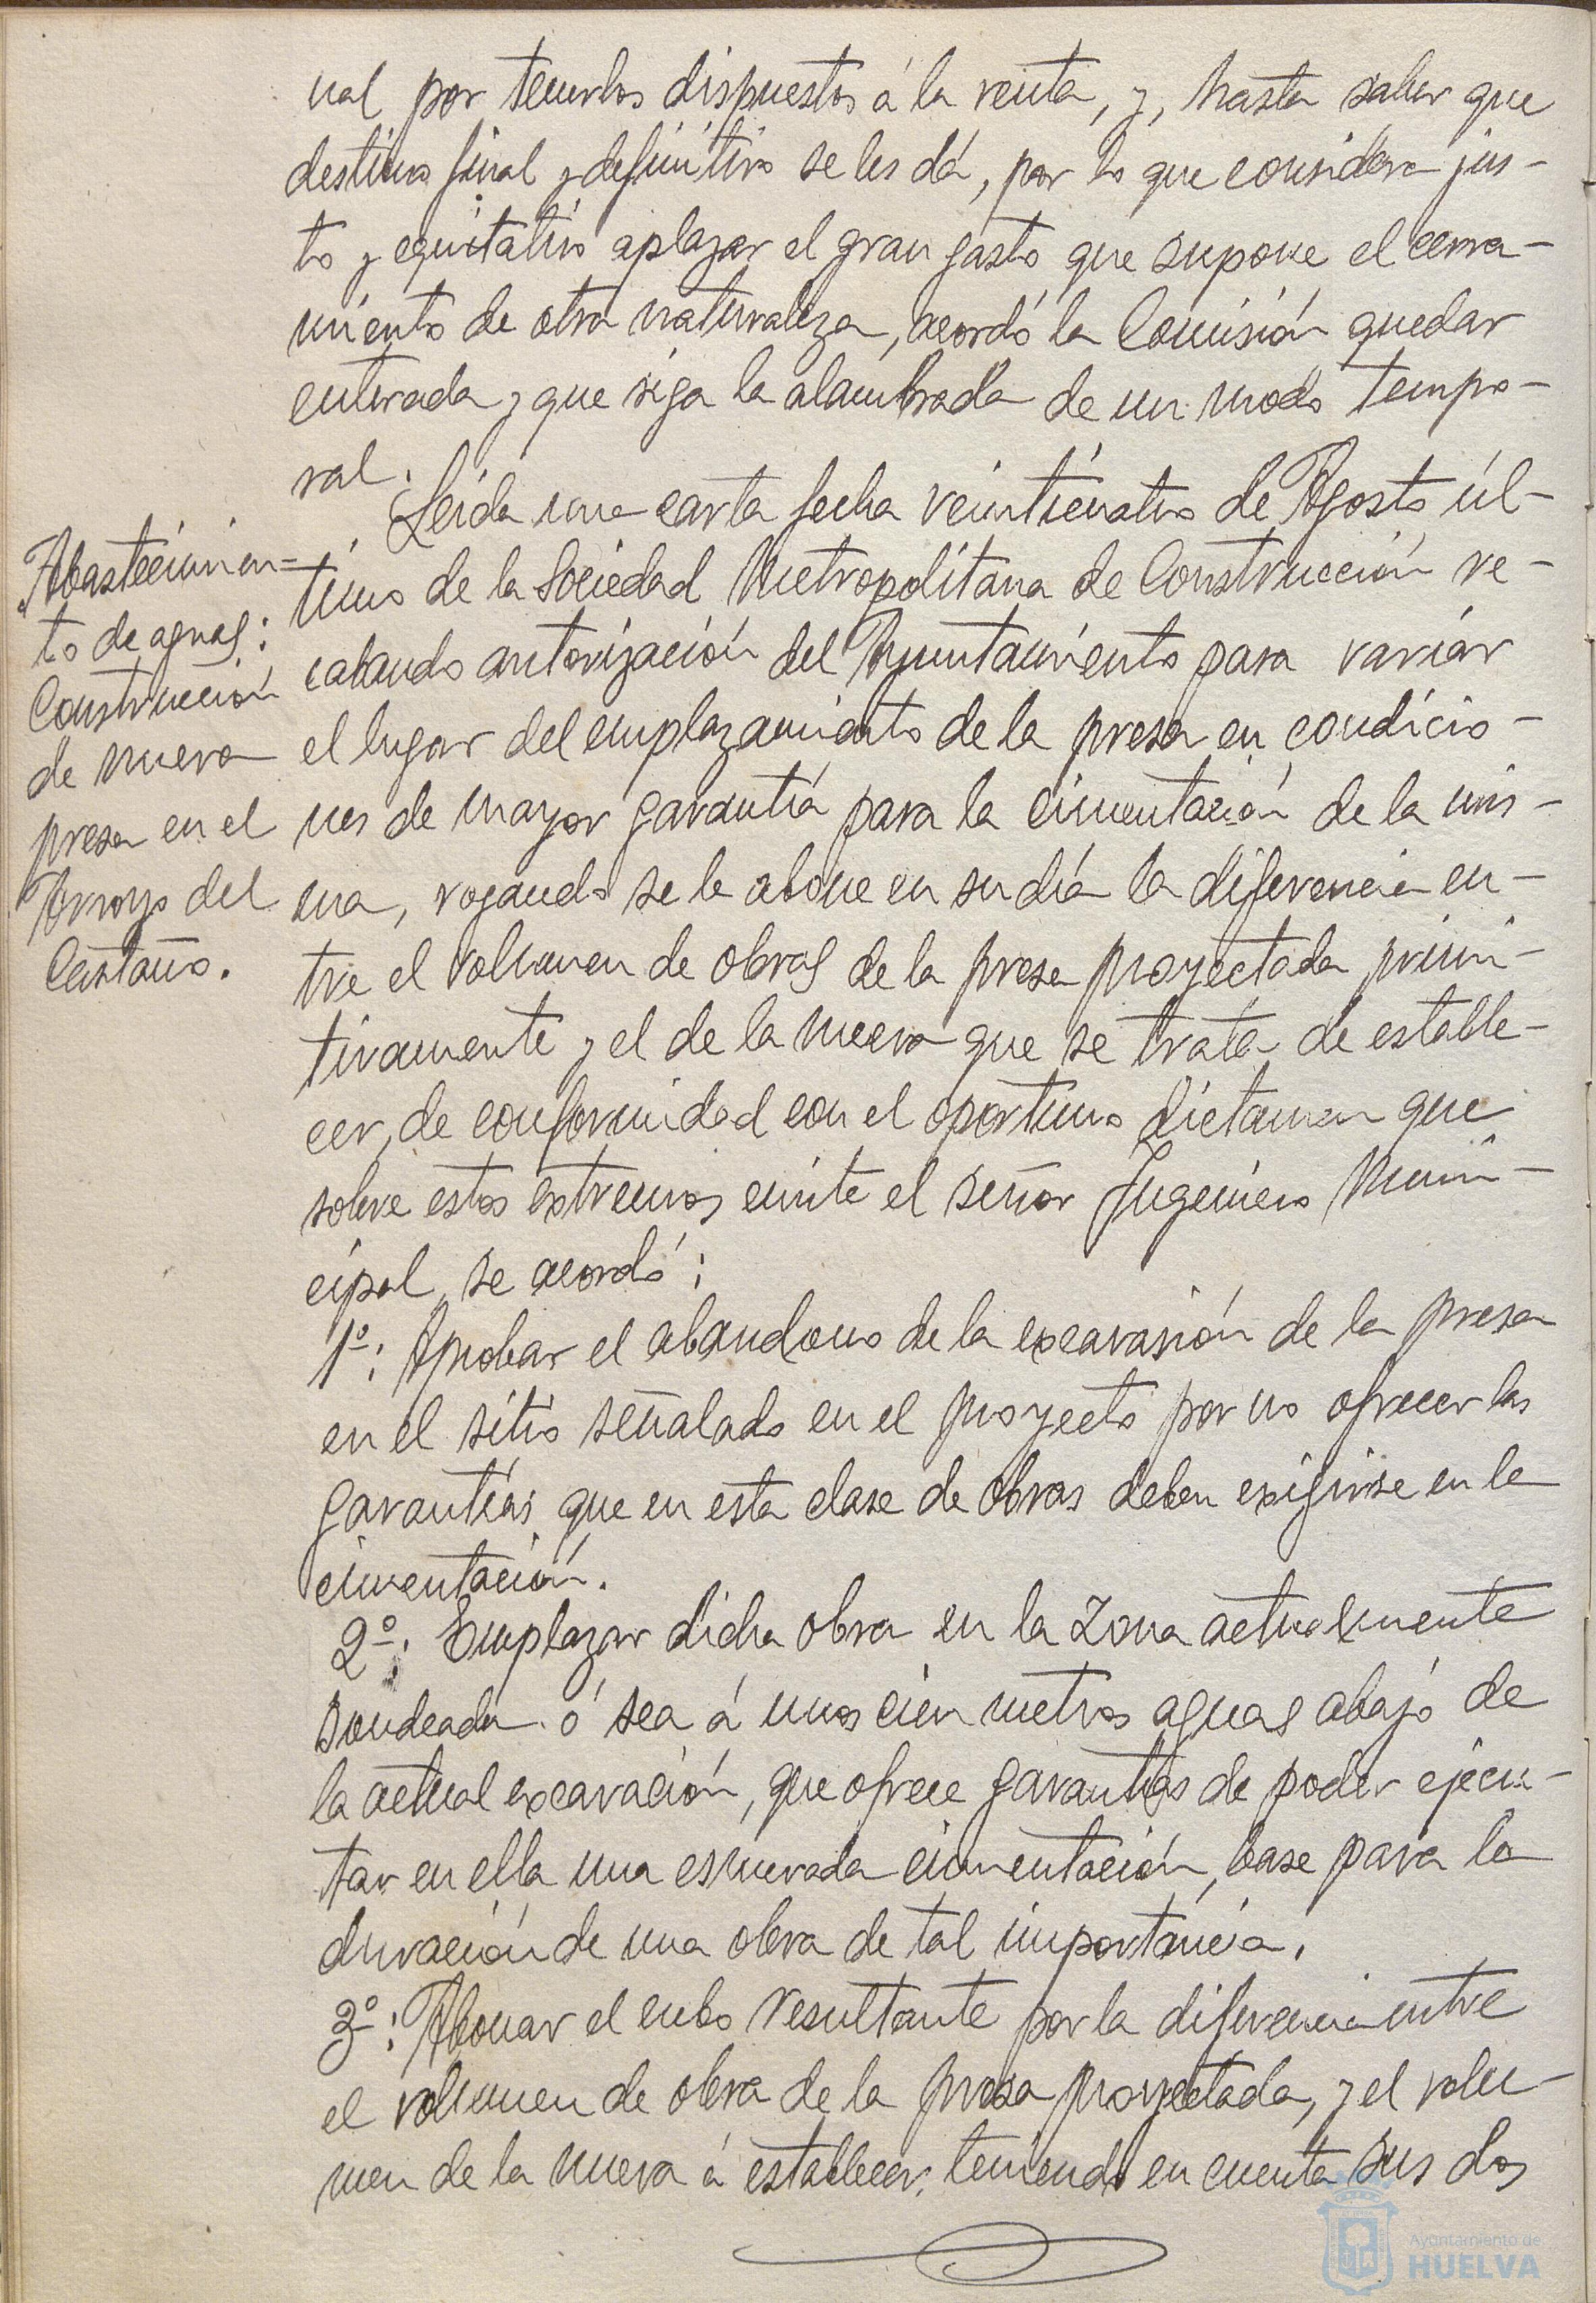 nal por tenerlos dispuestos á la venta, y, hasta saber que
destino final y definitivo se les dá, por lo que considera jus-
to y equitativo aplazar el gran gasto que supone el cerra-
miento de otra naturaleza, acordó la Comisión quedar
enterada y que siga la alambrada de un modo tempo-
ral.
Abastecimien-
to de aguas:
Construcción
de nueva
presa en el
Arroyo del
Castaño.
Leida una carta fecha veinticuatro de Agosto úl-
timo de la Sociedad Metropolitana de Construcción re-
cabando autorización del Ayuntamiento para variar
el lugar del emplazamiento de la presa en condicio-
nes de mayor garantía para la cimentación de la mis-
ma, rogando se le abone en su día la diferencia en-
tre el volumen de obras de la presa proyectada primi-
tivamente y el de la nueva que se trata de estable-
cer, de conformidad con el oportuno dictamen que
sobre estos extremos emite el señor Ingeniero Muni-
cipal, se acordó:
1º: Aprobar el abandono de la excavasión de la presa
en el sitio señalado en el proyecto por no ofrecer las
garantías que en esta clase de obras deben exigirse en la
cimentación.
2º: Emplazar dicha obra en la zona actualmente
sondeada ó sea á unos cien metros aguas abajo de
la actual excavación, que ofrece garantías de poder ejecu-
tar en ella una esmerada cimentación, base para la
duración de una obra de tal importancia.
3º: Abonar el cubo resultante por la diferencia entre
el volumen de obra de la presa proyectada, y el volu-
men de la nueva á establecer, teniendo en cuenta sus dos
Ayuntamiento de
HUELVA